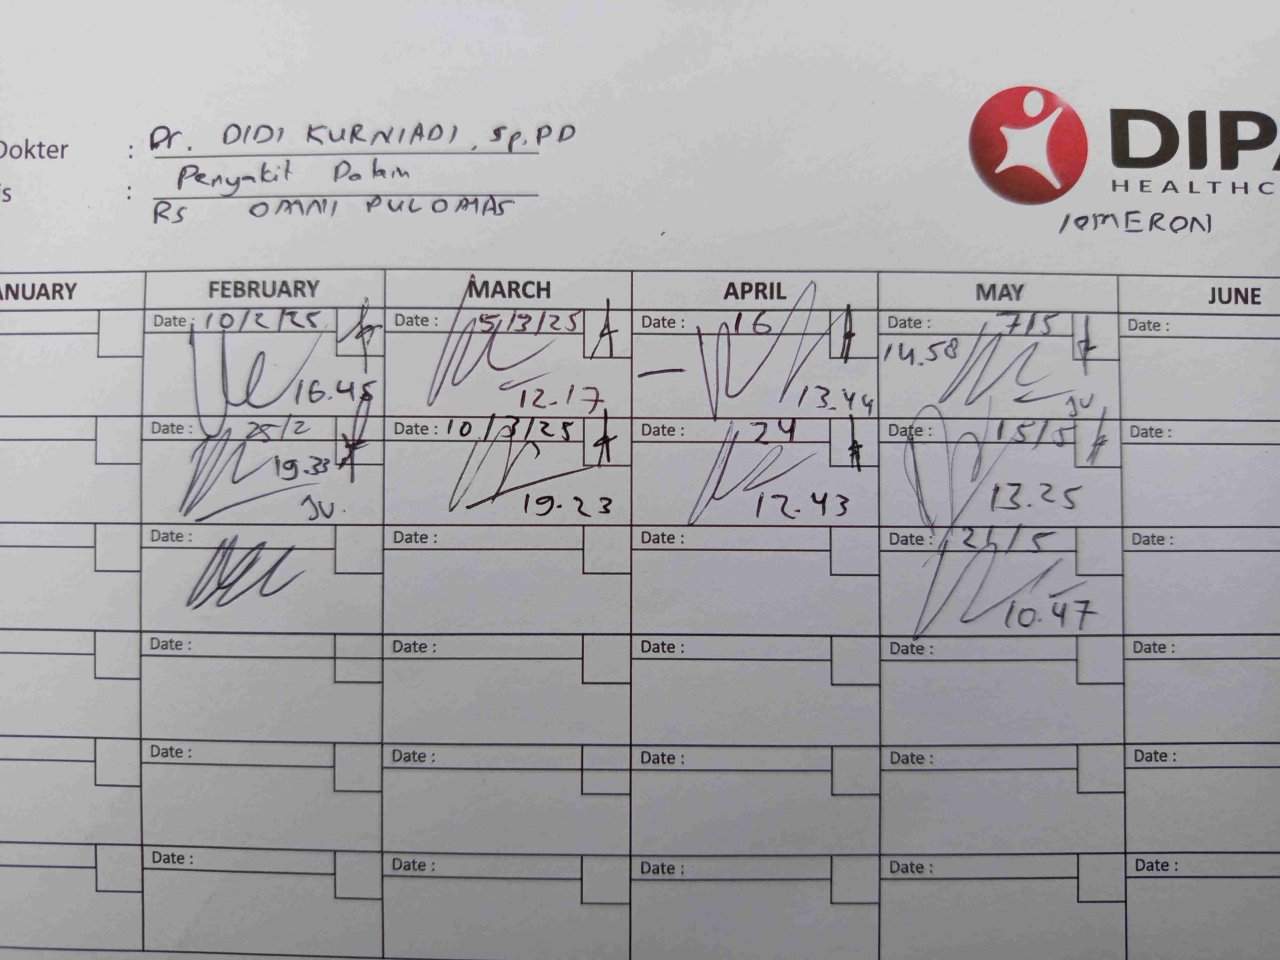 Dokter : Dr. DIDI KURNIADI, Sp.PD
: Penyakit Dalam
RS OMNI PULOMAS
DIPA
HEALTHC
IOMERON
ANUARY FEBRUARY MARCH APRIL MAY JUNE
Date : 10/2/25 Date : 5/3/25 Date : 16 Date : 7/5 Date :
16.45 12.17 13.44 14.58
Date : 25/2 Date : 10/3/25 Date : 24 Date : 15/5 Date :
19.33 19.23 12.43 13.25
Date : Date : Date : Date : Date :
10.47
Date : Date : Date : Date : Date :
Date : Date : Date : Date : Date :
Date : Date : Date : Date : Date :